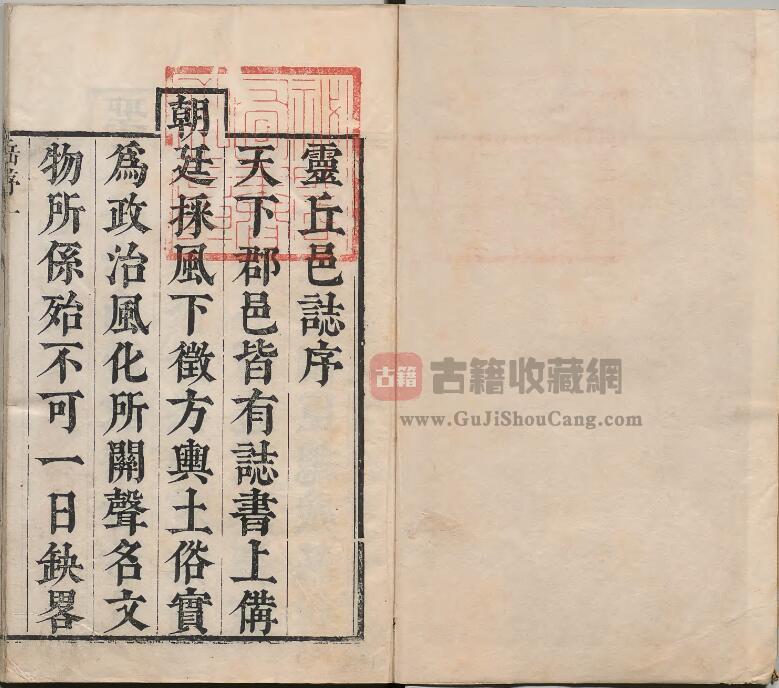 靈丘邑誌序
天下郡邑皆有誌書上備
朝廷採風下徵方輿土俗實
爲政治風化所關聲名文
物所係殆不可一日缺畧
古籍
古籍收藏網
www.GuJiShouCang.com